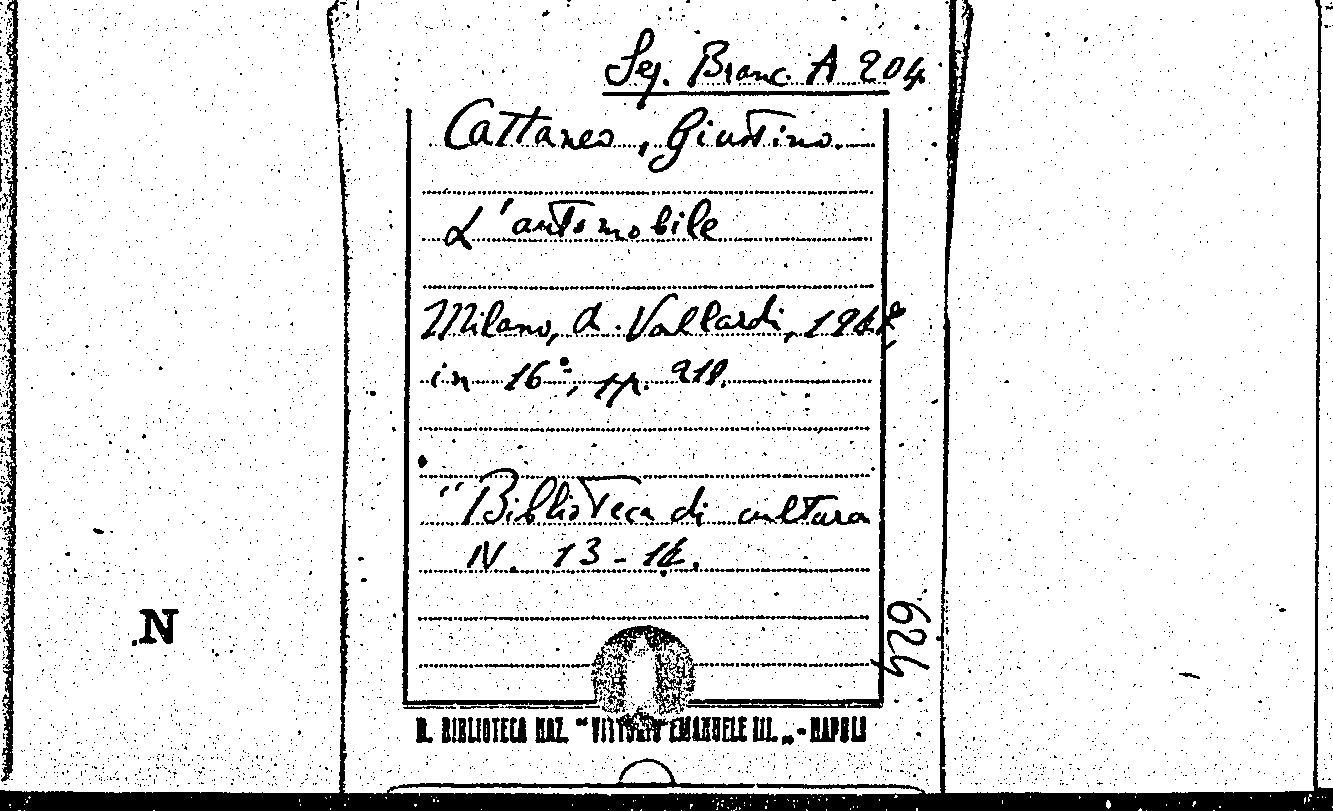 Sez. Branc. A 204
Cattaneo, Giustino.
L'automobile
Milano, A. Vallardi, 1942,
in 16°, pp. 218.
"Biblioteca di cultura
N. 13-14.
624
N
R. BIBLIOTECA NAZ. "VITTORIO EMANUELE III." - NAPOLI